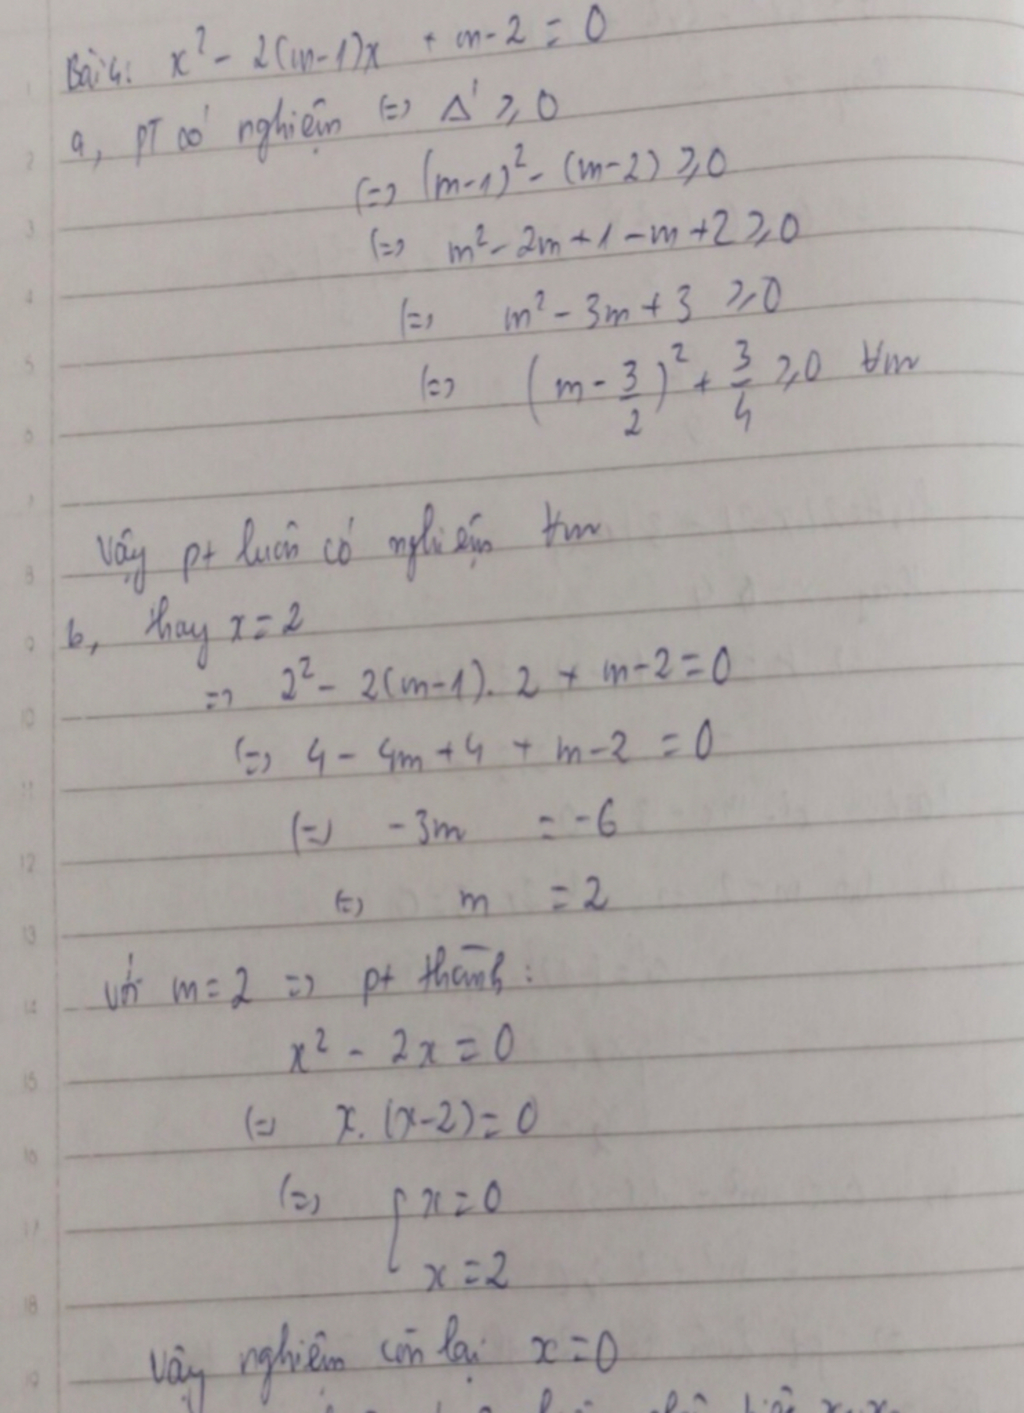 Bài 4: x² - 2(m-1)x + m-2 = 0
a, PT có nghiệm (=) Δ' ≥ 0
(=) (m-1)² - (m-2) ≥ 0
(=) m² - 2m + 1 - m + 2 ≥ 0
(=) m² - 3m + 3 ≥ 0
(=) (m - 3/2)² + 3/4 ≥ 0 ∀m
Vậy pt luôn có nghiệm ∀m
b, thay x = 2
=> 2² - 2(m-1). 2 + m-2 = 0
(=) 4 - 4m + 4 + m-2 = 0
(=) -3m = -6
(=) m = 2
với m = 2 => pt thành:
x² - 2x = 0
(=) x. (x-2) = 0
(=) [ x = 0
x = 2
Vậy nghiệm còn lại x = 0